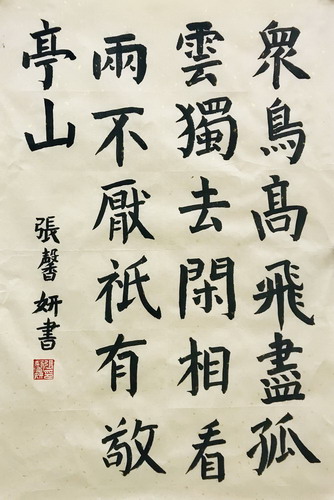 衆鳥高飛盡孤
雲獨去閑相看
兩不厭祇有敬
亭山
張馨妍書